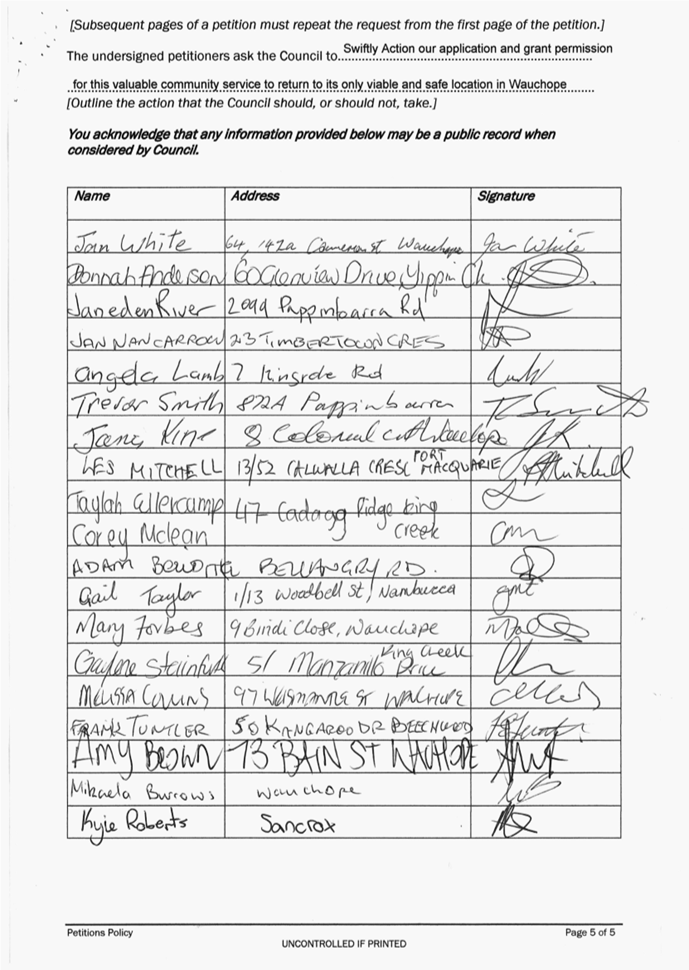 [Subsequent pages of a petition must repeat the request from the first page of the petition.]
The undersigned petitioners ask the Council to...Swiftly Action our application and grant permission
for this valuable community service to return to its only viable and safe location in Wauchope
[Outline the action that the Council should, or should not, take.]
You acknowledge that any information provided below may be a public record when
considered by Council.
Name Address Signature
Jan White 64, 142a Cameron st Wauchope Jan White
Donnah Anderson 60 Glenview Drive, Yippin Ck
Janeden River 2099 Pappinbarra Rd
JAN NANCARROW 23 TIMBERTOWN CRES
Angela Lamb 7 Kingsde Rd
Trevor Smith 872A Pappinbarra
8 Colonial
LES MITCHELL 13/52 CALWALLA CRESC PORT MACQUARIE
Taylah Ellercamp 47 Ridge king
Corey Mclean creek
ADAM BELLANGRY RD.
Gail Taylor 1/13 Woodbell St, Nambucca
Mary Forbes 9 Bindi Close, Wauchope
Gaylene 51 Manzanillo Drive King Creek
MELISSA COLLINS 97 ST WAUCHOPE
FRANK TUNTLER 50 KANGAROO DR BEECHWOOD
AMY BROWN 73 BAIN ST WAUCHOPE
Mikaela Burrows Wauchope
Kylie Roberts Sancrox
Petitions Policy Page 5 of 5
UNCONTROLLED IF PRINTED